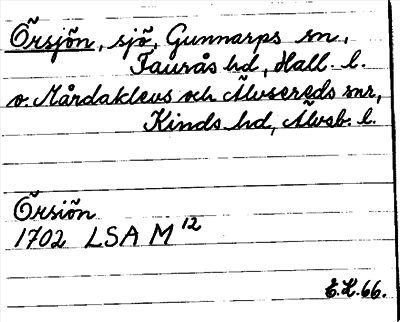 Örsjön, sjö, Gunnarps sn,
Faurås hd, Hall. l.
o. Mårdaklevs och Älvsereds snr,
Kinds hd, Älvsb. l.
Örsiön
1702 LSA M 12
E.H. 66.